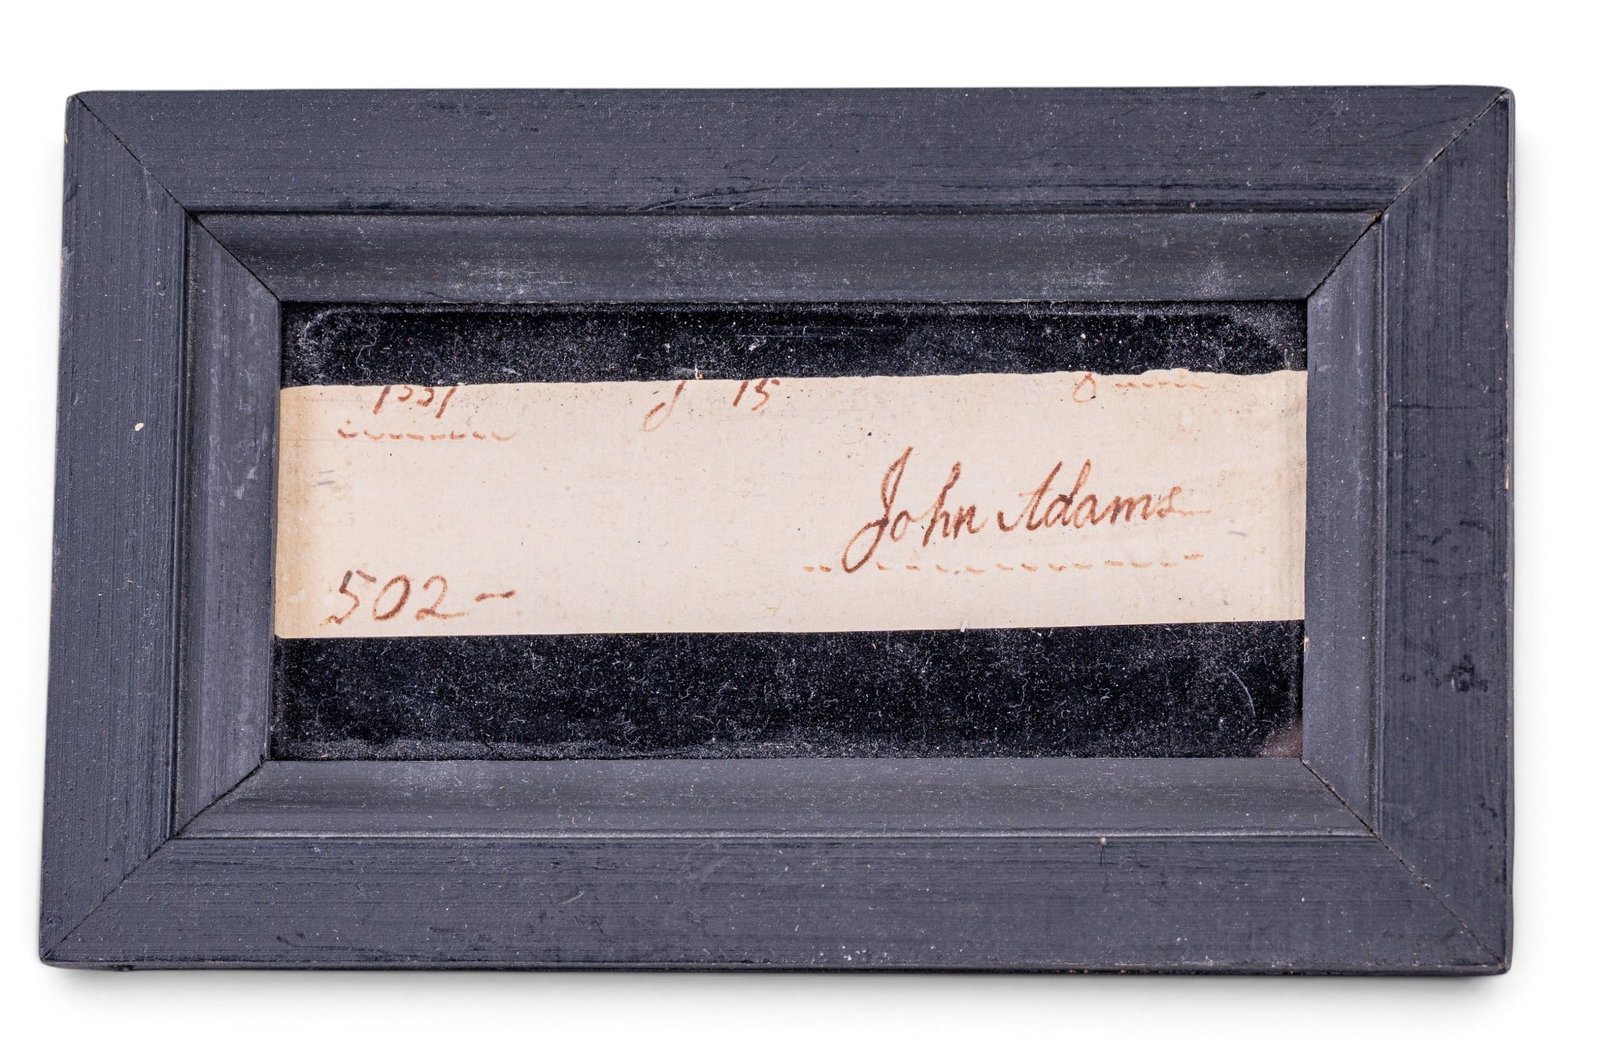 15
John Adams
502-